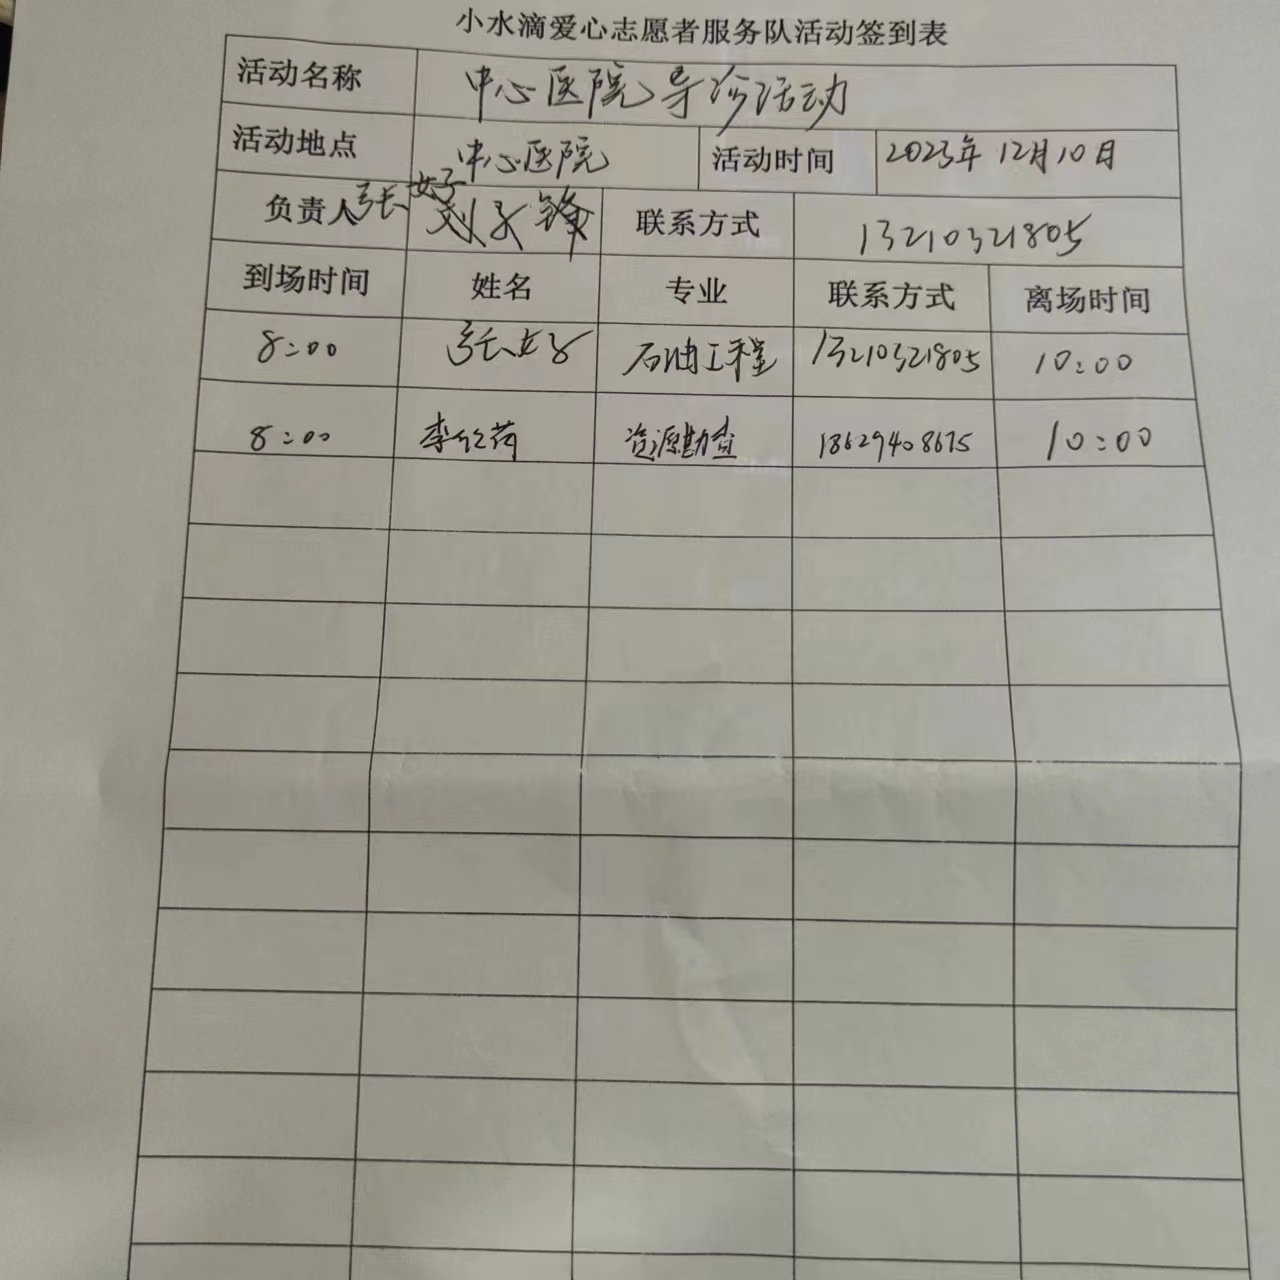 小水滴爱心志愿者服务队活动签到表
活动名称 中心医院导诊活动
活动地点 中心医院 活动时间 2023年12月10日
负责人 张好 刘子锋 联系方式 13210321805
到场时间 姓名 专业 联系方式 离场时间
8:00 张好 石油工程 13210321805 10:00
8:00 李 荷 资源勘查 18629408675 10:00